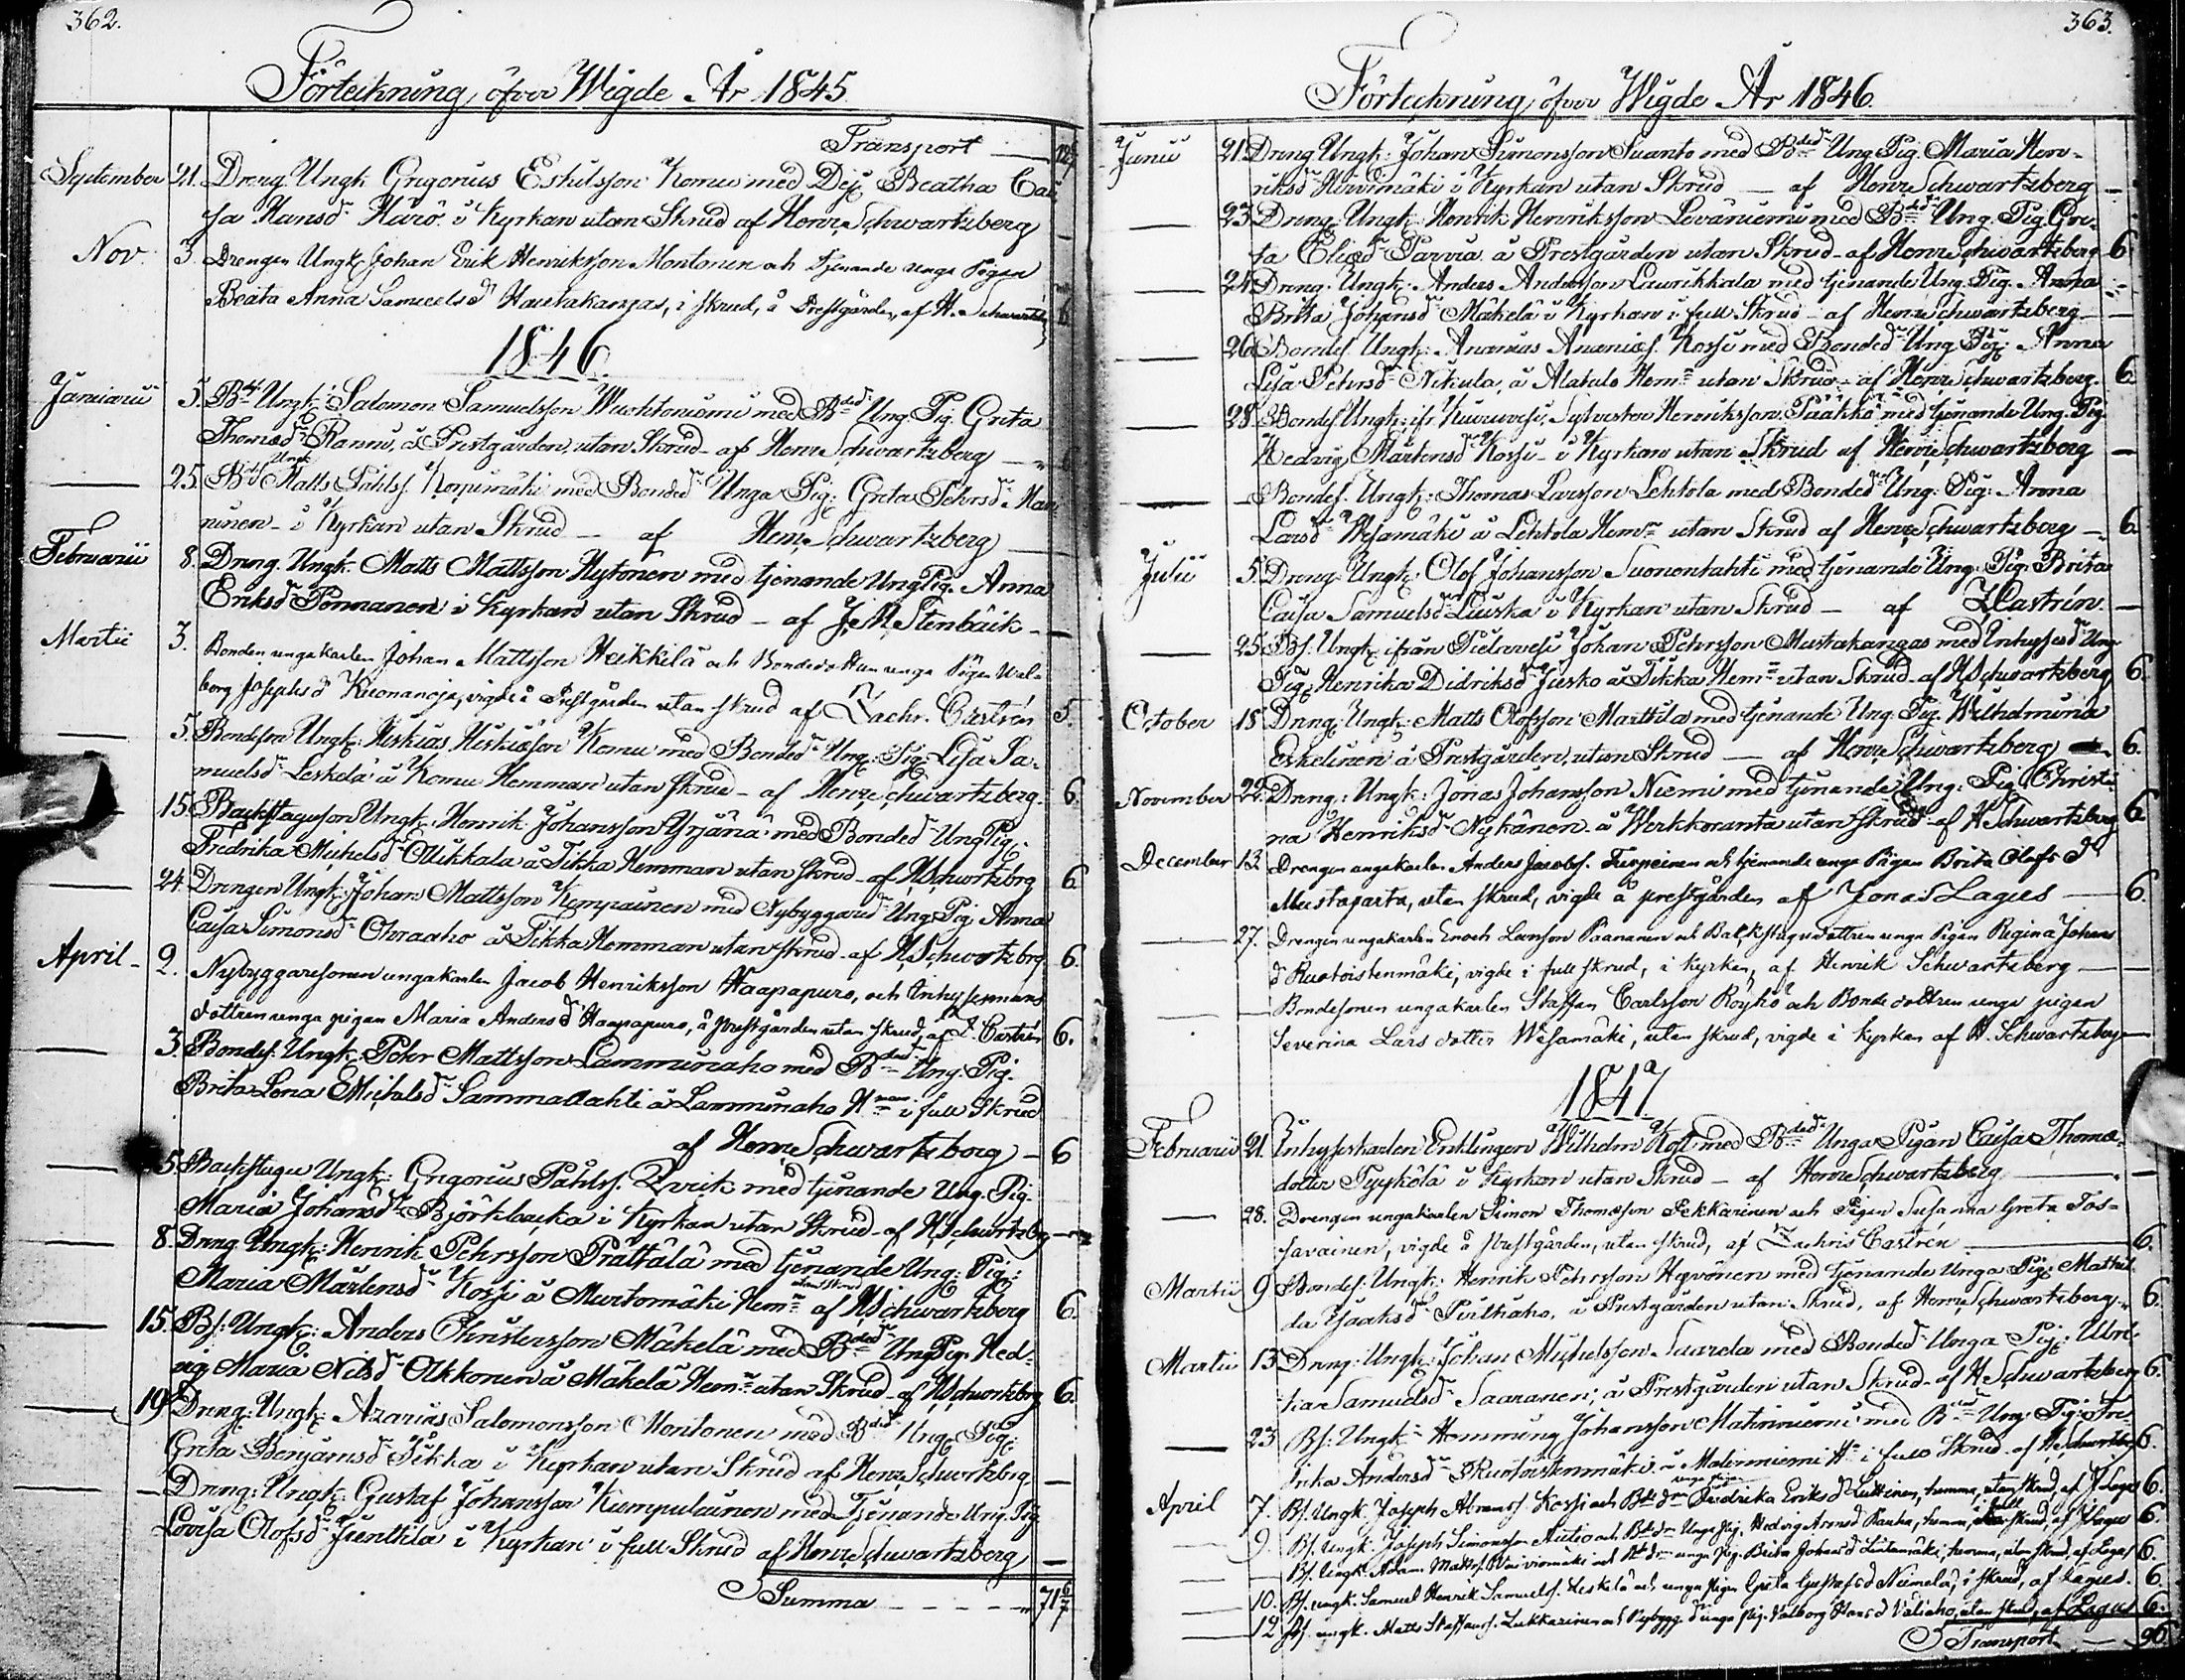 362.
Förteckning öfver Wigde År 1845
Transport
September 21. Dreng. Ungk. Grigorius Eskilsson Komu med Dej. Beatha Cai
sa Hansdr Härö i Kyrkan utan Skrud af Henr. Schwartzberg
Nov. 3. Drengen Ungk. Johan Erik Henriksson Montonen och tjenande unga Pigan
Beata Anna Samuelsdr Hautakangas, i skrud, å Prestgården, af H. Schwartzb. 6
1846.
Januarii 5. Bd. Ungk. Salomon Samuelsson Wuohtoniemi med Bdedr Ung. Pig. Greta
Thomædr Rannu, å Prestgården, utan Skrud - af Henr. Schwartzberg
25. Bds Ungk Matts Påhls. Korpimäki med Bondedr Unga Pig. Greta Pehrsdr Man
ninen - i Kyrkan utan Skrud - af Henr. Schwartzberg
Februarii 8. Dreng. Ungk. Matts Mattsson Hytönen med tjenande Ung. Pig. Anna
Eriksdr Ponnanen i Kyrkan utan Skrud - af J. M. Stenbäck
Martii 3. Bonden ungakarlen Johan Mattsson Heikkilä och Bondedottren unga Pigan Wal-
borg Josephsdr Kuonanoja, vigde å Prestgården utan skrud af Zachr. Castrén 5.
5. Bondeson Ungk. Heskias Heskiæson Komu med Bondedr Ung. Pig. Lisa Sa-
muelsdr Leskelä å Komu Hemman utan Skrud - af Henr. Schwartzberg. 6.
15. Backstuguson Ungk. Henrik Johansson Yrjänä med Bondedr Ung Pig.
Fredrika Michelsdr Ollikkala å Tikka Hemman utan skrud - af H Schwartzbrg 6
24 Drengen Ungk. Johan Mattsson Kempainen med Nybyggaredr Ung Pig. Anna
Caisa Simonsdr Ohraaho å Tikka Hemman utan skrud - af H Schwartzbrg 6.
April - 2. Nybyggaresonen ungakarlen Jacob Henriksson Haapapuro, och Inhysesmans
dottren unga pigan Maria Andersdr Haapapuro, å prestgården utan skrud, af Z. Castrén 6.
3. Bondes. Ungk. Pehr Mattsson Lamminaho med Bdedr Ung. Pig.
Brita Lena Michelsdr Sammallahti å Lamminaho Hman i full Skrud
af Henr. Schwartzberg - 6
5. Backstugu Ungk: Grigorius Påhlss. Qvick med tjenande Ung. Pig.
Maria Johansdr Björkbacka i Kyrkan utan Skrud - af H Schwrtzbg -
8. Dreng Ungk: Henrik Pehrsson Prättälä med tjenande Ung: Pig:
Maria Mårtensdr Kossi å Murtomäki Hem: utan skrud af H Schwartzberg 6.
15. Bs: Ungk: Anders Christersson Mäkelä med Bdedr Ung Pig. Hed-
vig Maria Nilsdr Olkkonen å Mäkelä Hem: utan Skrud - af H Schwartzbrg 6.
19 Dreng: Ungk: Azarias Salomonsson Montonen med Bdedr Ung. Pig.
Greta Benjamsdr Tikka i Kyrkan utan Skrud af Henr. Schwartzbrg. -
- Dreng: Ungk: Gustaf Johansson Kumpulainen med Tjenande Ung. Pig
Lovisa Olofsdr Jienttilä i Kyrkan i full Skrud af Henr. Schwartzberg -
Summa - - - - 71 6/7
363.
Förteckning öfver Wigde År 1846
Junii 21 Dreng Ungk: Johan Simonsson Suanto med Bdedr Ung Pig: Maria Hen-
riksdr Hirvimäki i Kyrkan utan Skrud - af Henr Schwartzberg -
23 Dreng: Ungk: Henrik Henriksson Leväniemi med Bdedr Ung. Pig Gre-
ta Eliædr Parvia å Prestgården utan Skrud - af Henr Schwartzberg 6
24 Dreng: Ungk: Anders Andersson Laurikkala med tjenande Ung. Pig. Anna
Brita Johansdr Mäkelä i Kyrkan i full Skrud - af Henr Schwartzberg -
26 Bondes. Ungk: Ananias Ananiæs. Kossi med Bondedr Ung. Pig: Anna
Lisa Pehrsdr Nikula, å Alatalo Hem: utan Skrud - af Henr Schwartzberg. 6.
28 Bondes Ungk: ifr. Kiuruvesi, Sylvester Henriksson Päähkö med tjenande Ung. Pig
Hedvig Mårtensdr Kossi - i Kyrkan utan Skrud af Henr Schwartzberg -
- Bondes. Ungk: Thomas Larsson Lehtola med Bondedr Ung. Pig: Anna
Larsdr Wesamäki å Lehtola Hem: utan Skrud af Henr Schwartzberg - 6.
Julii 5 Dreng: Ungk: Olof Johansson Suonenlahti med tjenande Ung. Pig: Brita
Caisa Samuelsdr Luiska i Kyrkan utan Skrud - af Z Castrén. -
25 Bs. Ungk: ifrån Pielavesi Johan Pehrsson Mustakangas med Inhysesdr Ung
Pig: Henrika Didriksdr Jusko å Tikka Hem: utan Skrud - af H Schwartzberg 6.
October 18 Dreng: Ungk: Matts Olofsson Marttila med tjenande Ung. Pig. Wilhelmina
Eskelinen å Prestgården, utan Skrud - af Henr Schwartzberg - 6.
November 22. Dreng: Ungk: Jonas Johansson Niemi med tjenande Ung: Pig Christi-
na Henriksdr Nykänen - å Werkkoranta utan Skrud - af H Schwartzberg 6
December 13 Drengen ungakarlen Anders Jacobs. Turpeinen och tjenande unga Pigan Brita Olofsdr
Mustaparta, utan skrud, vigde å prestgården af Jonas Lagus - 6.
27. Drengen ungakarlen Enoch Larsson Paananen och Backstugudottren unga Pigan Regina Johans
dr Ruotoistenmäki, vigde i full skrud, i kyrkan, af Henrik Schwartzberg -
- Bondesonen ungakarlen Staffan Carlsson Röykö och Bondedottren unga pigan
Severina Larsdotter Wesamäki, utan skrud, vigde i kyrkan af H. Schwartzberg -
1847.
Februarii 21. Inhyseskarlen Enklingen Wilhelm Koft med Bdedr Unga Pigan Caisa Thomæ-
dotter Pyykölä i Kyrkan utan Skrud - af Henr Schwartzberg -
28. Drengen ungakarlen Simon Thomæson Pekkarinen och Pigan Susanna Greta Tos-
savainen, vigde å prestgården, utan skrud, af Zachris Castrén - 6.
Martii 9 Bondes: Ungk: Henrik Pehrsson Hyvönen med tjenande Unga Pig: Mathil-
da Isaaksdr Peritaho, å Prestgården utan Skrud, af Henr Schwartzberg. 6.
Martii 13 Dreng: Ungk: Johan Michelsson Saarela med Bondedr Unga Pig. Ulri-
ka Samuelsdr Saaranen; å Prestgården utan Skrud - af H Schwartzberg 6.
23 Bs: Ungk: Hemming Johansson Matinniemi med Bdedr Ung: Pig: Fre-
drika Andersdr Ruotoistenmäki å Matinniemi H: i full Skrud af H Schwartzbg 6.
April 7. Bs. Ungk. Joseph Abramss. Kossi och Bdedr unga pigan Fredrika Eriksdr Luttinen, hemma, utan skrud, af J Lagus 6.
9. Bs. Ungk. Joseph Simonsson Autio och Bdedr Unga Pig. Hedvig Aronsdr Rauha, hemma, i full skrud, af J Lagus 6.
- Bs. Ungk. Adam Mattss. Waiviomäki och Bdedr unga pig. Brita Johansdr Lintumäki, hemma, utan skrud, af Lagus 6.
10. Bs. ungk. Samuel Henrik Samuelss. Leskelä och unga Pigan Greta Gustafsdr Niemelä, i skrud, af Lagus. 6.
12 Bs. ungk. Matts Staffanss. Lukkarinen och Nybygg.dr unga pig. Valborg Hansdr Väliaho, utan skrud, af Lagus 6.
Transport - 96